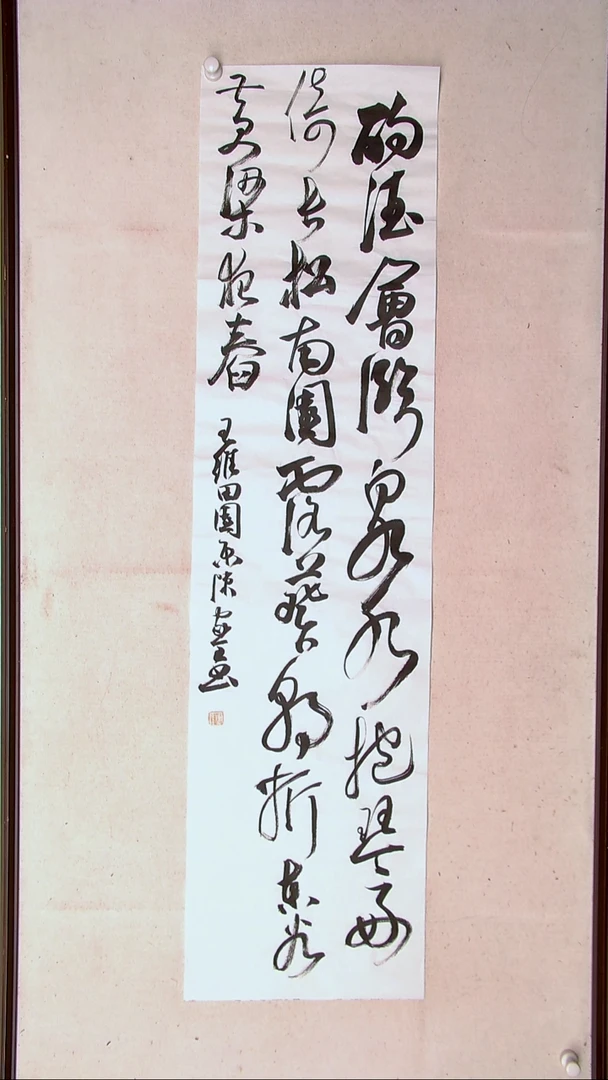 酌酒會臨泉水抱琴好
倚長松南園露葵朝折東谷
黃粱夜舂
王維田園樂陳書